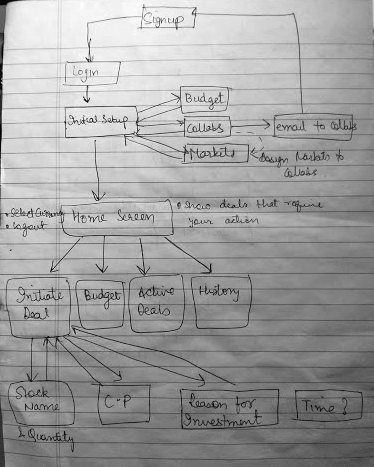 Signup
Login
Budget
Initial Setup
Collabs
email to Collabs
Markets
Assign Markets to
Collabs
Home Screen
Logout
Show deals that require
your action
Initiate
Deal
Budget
Active
Deals
History
Stock
Name
& Quantity
C.P
Reason for
Investment
Time ?